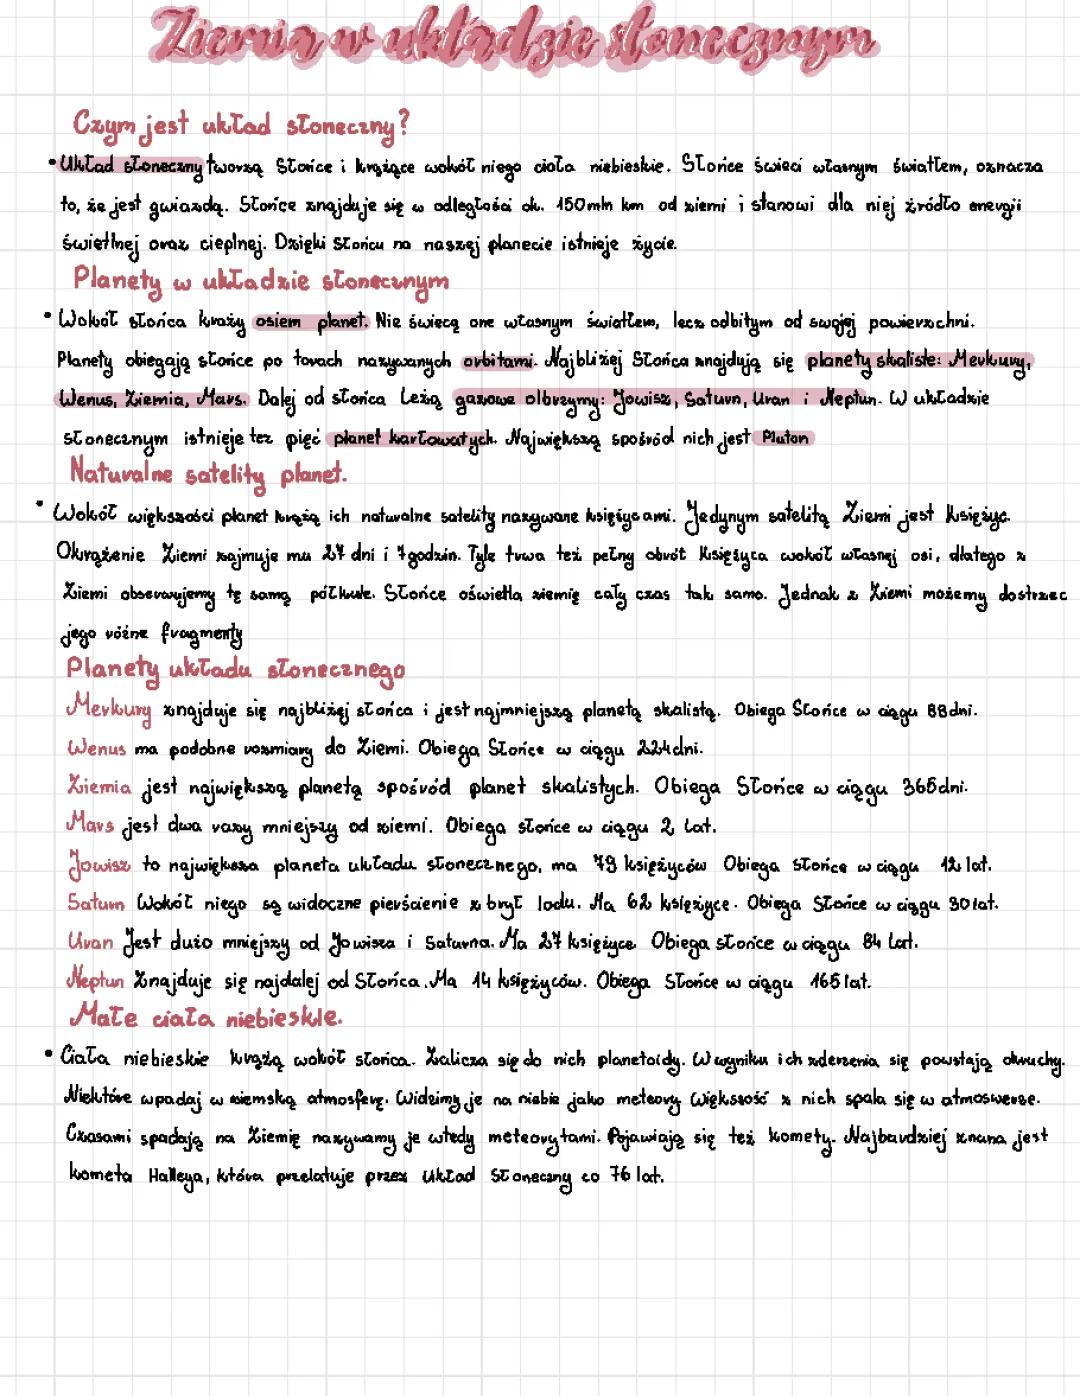 Ziemia w układzie słonecznym
Czym jest układ słoneczny?
• Układ słoneczny tworzą Słońce i krążące wokół niego ciała niebieskie. Słońce świeci własnym światłem, oznacza
to, że jest gwiazdą. Słońce znajduje się w odległości ok. 150mln km od ziemi i stanowi dla niej źródło energii
świetlnej oraz cieplnej. Dzięki Słońcu na naszej planecie istnieje życie.
Planety w układzie słonecznym
• Wokół słońca krąży osiem planet. Nie świecą one własnym światłem, lecz odbitym od swojej powierzchni.
Planety obiegają słońce po torach nazywanych orbitami. Najbliżej Słońca znajdują się planety skaliste: Merkury,
Wenus, Ziemia, Mars. Dalej od słońca leżą gazowe olbrzymy: Jowisz, Saturn, Uran i Neptun. W układzie
słonecznym istnieje też pięć planet karłowatych. Największą spośród nich jest Pluton
Naturalne satelity planet.
• Wokół większości planet krążą ich naturalne satelity nazywane księżycami. Jedynym satelitą Ziemi jest Księżyc.
Okrążenie Ziemi zajmuje mu 27 dni i 7godzin. Tyle trwa też pełny obrót Księżyca wokół własnej osi, dlatego z
Ziemi obserwujemy tę samą półkule. Słońce oświetla ziemię cały czas tak samo. Jednak z Ziemi możemy dostrzec
jego różne fragmenty
Planety układu słonecznego
Merkury znajduje się najbliżej słońca i jest najmniejszą planetą skalistą. Obiega Słońce w ciągu 88dni.
Wenus ma podobne rozmiary do Ziemi. Obiega Słońce w ciągu 224dni.
Ziemia jest największą planetą spośród planet skalistych. Obiega Słońce w ciągu 365dni.
Mars jest dwa razy mniejszy od ziemi. Obiega słońce w ciągu 2 lat.
Jowisz to największa planeta układu słonecznego, ma 79 księżyców Obiega słońce w ciągu 12 lat.
Saturn Wokół niego są widoczne pierścienie z brył lodu. Ma 62 księżyce. Obiega Słońce w ciągu 30lat.
Uran Jest dużo mniejszy od Jowisza i Saturna. Ma 27 księżyce Obiega słońce w ciągu 84 lat.
Neptun Znajduje się najdalej od Słońca. Ma 14 księżyców. Obiega Słońce w ciągu 165lat.
Małe ciała niebieskie.
• Ciała niebieskie krążą wokół słońca. Zalicza się do nich planetoidy. W wyniku ich zderzenia się powstają okruchy.
Niektóre wpadaj w ziemską atmosferę. Widzimy je na niebie jako meteory Większość z nich spala się w atmoswerze.
Czasami spadają na Ziemię nazywamy je wtedy meteorytami. Pojawiają się też komety. Najbardziej znana jest
kometa Halleya, która przelatuje przez Układ Słoneczny co 76 lat.